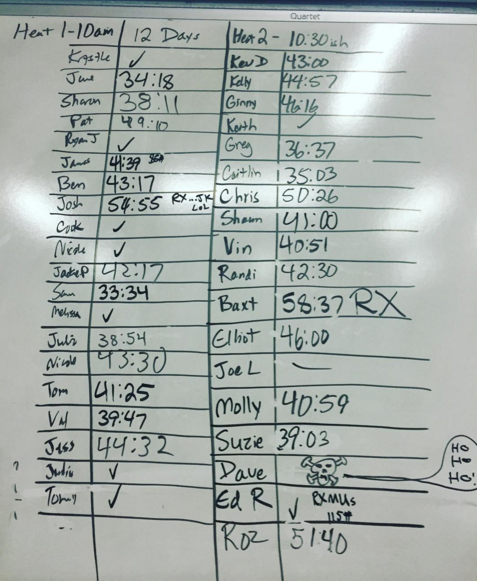 Quartet
Heat 1-10am 12 Days
Krystle ✓
June 34:18
Sharon 38:11
Pat 49:10
Ryan J ✓
James 41:39
Ben 43:17
Josh 54:55 RX...JK LOL
Cook ✓
Nicole ✓
Jackie P 42:17
Sam 33:34
Melissa ✓
Julie 38:54
Nicole 43:30
Tom 41:25
Val 39:47
Jess 44:32
Justin ✓
Tommy ✓
Heat 2 - 10:30ish
Kev D 43:00
Kelly 44:57
Ginny 46:16
Keith ✓
Greg 36:37
Caitlin 35:03
Chris 50:26
Shawn 41:00
Vin 40:51
Randi 42:30
Baxt 58:37 RX
Elliot 46:00
Joe L —
Molly 40:59
Suzie 39:03
Dave
HO HO HO!
Ed R ✓ 115#
Roz 51:40